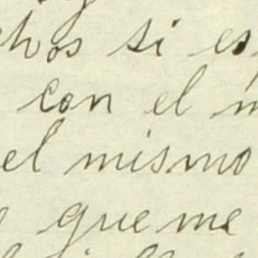 si es
con el
el mismo
que me